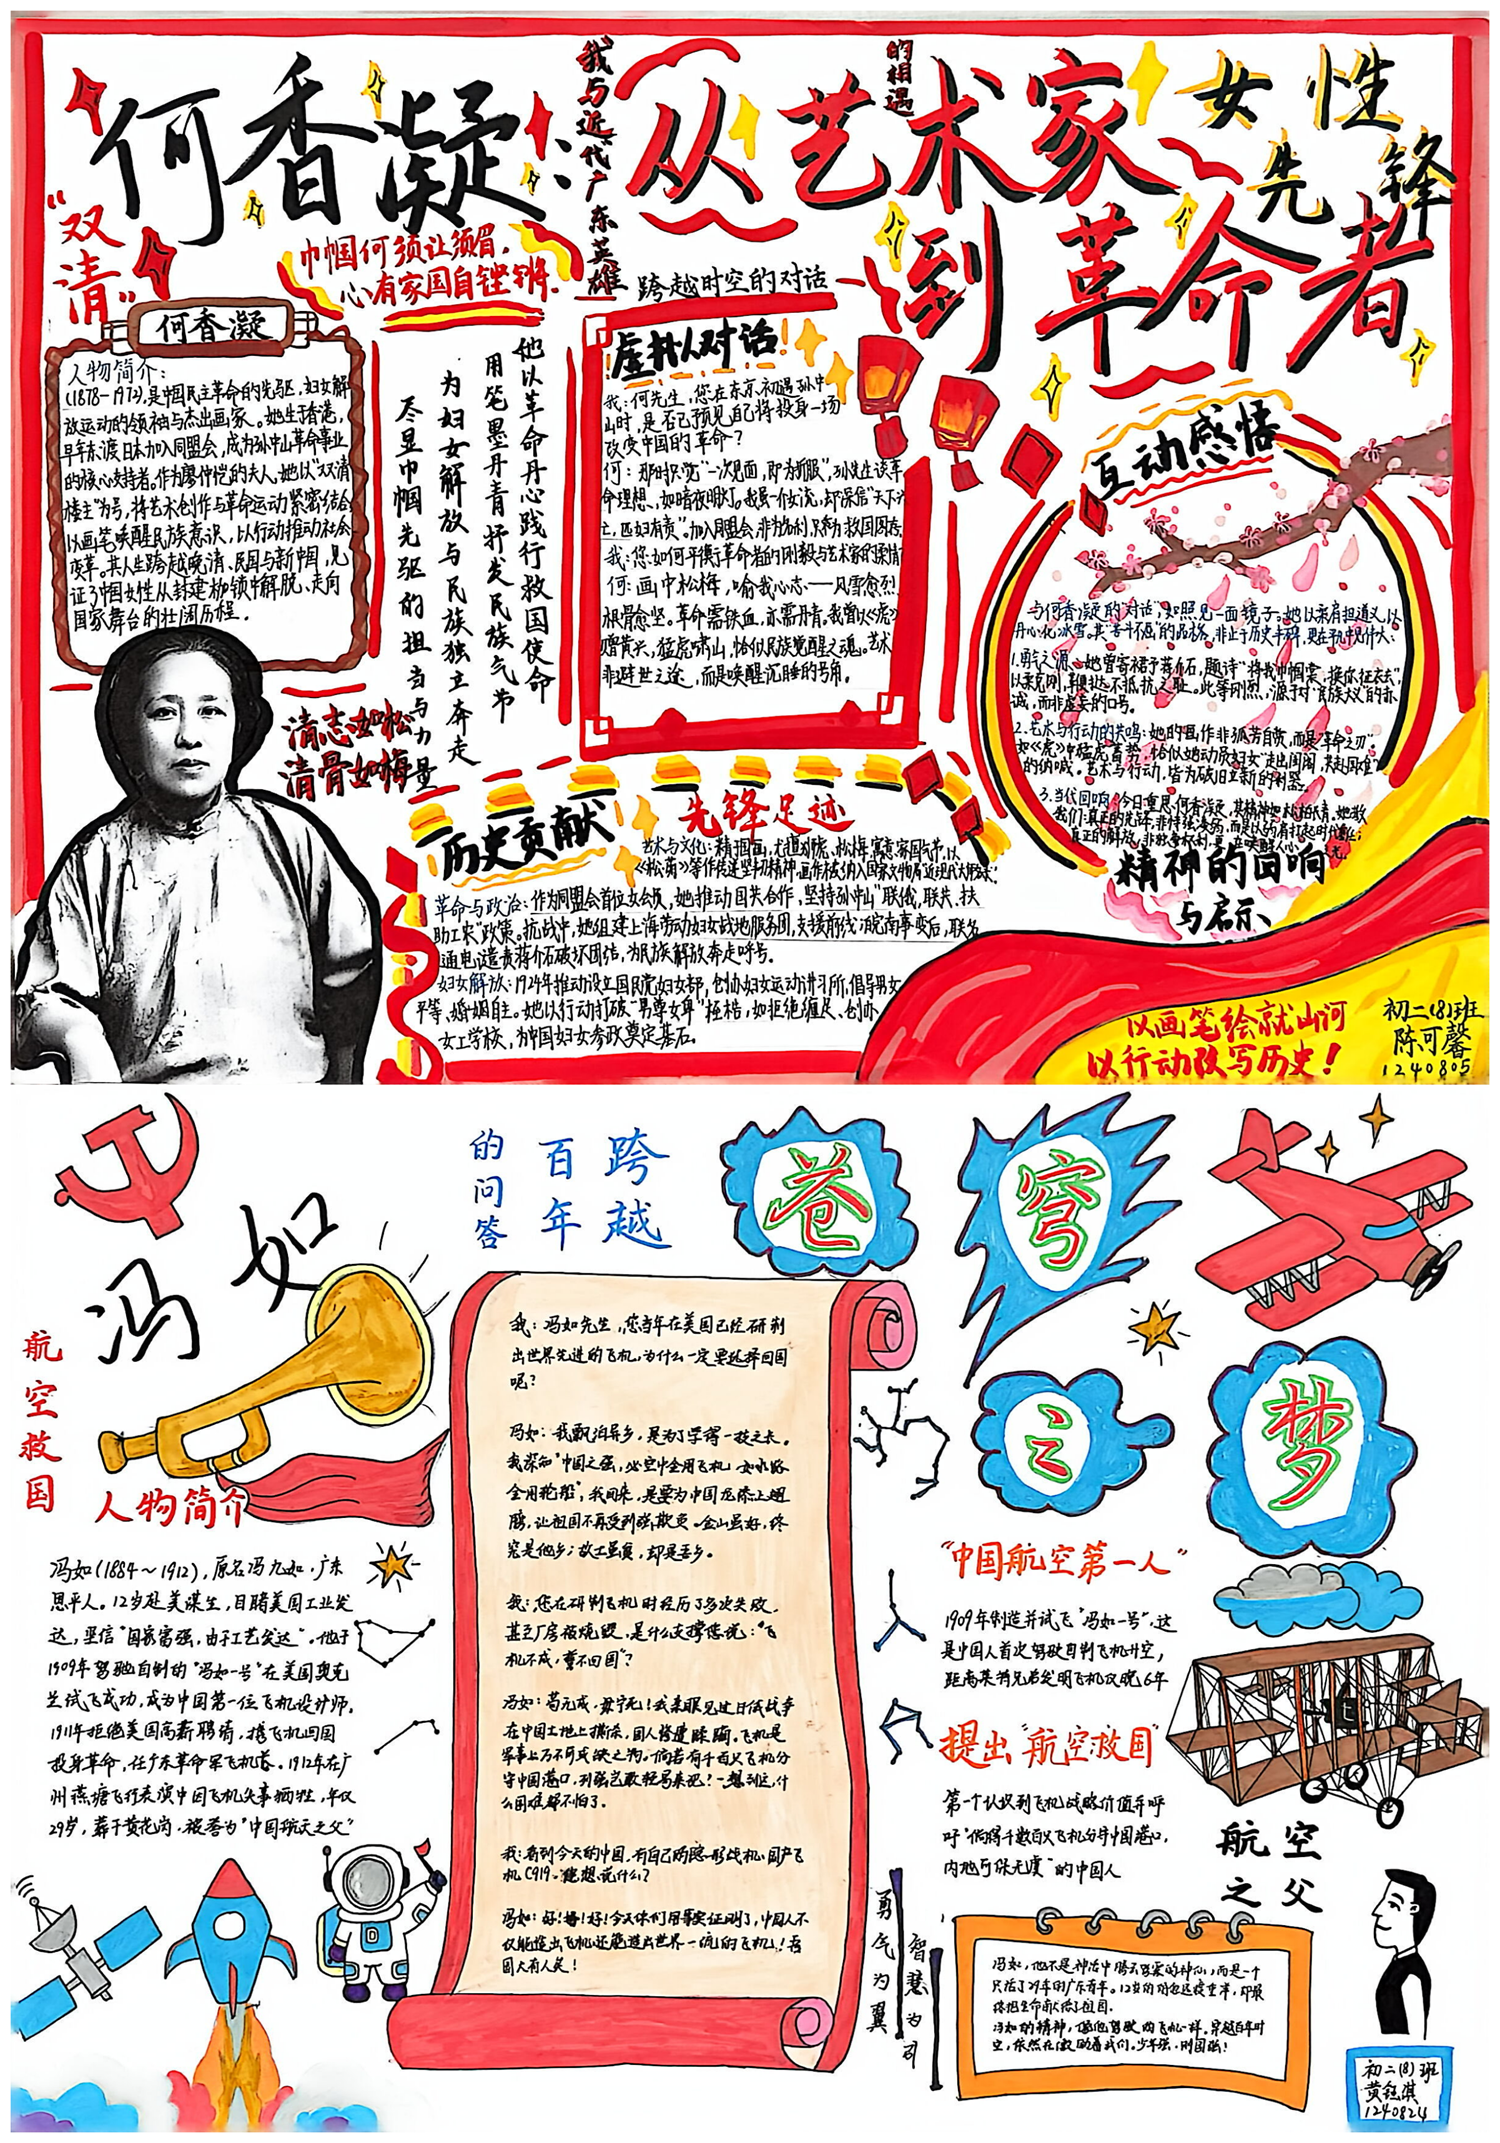 何香凝:
我与近代广东英雄
的相遇
从艺术家
到革命者
女性
先锋
“双清”
巾帼何须让须眉,
心有家国自铿锵.
跨越时空的对话
何香凝
人物简介:
(1878-1972),是中国民主革命的先驱、妇女解
放运动的领袖与杰出画家。她生于香港,
早年东渡日本加入同盟会,成为孙中山革命事业
的核心支持者。作为廖仲恺的夫人,她以“双清
楼主”为号,将艺术创作与革命运动紧密结合,
以画笔唤醒民族意识,以行动推动社会
变革。其人生跨越晚清、民国与新中国,见
证了中国女性从封建枷锁中解脱、走向
国家舞台的壮阔历程.
她以革命丹心践行救国使命
用笔墨丹青抒发民族气节
为妇女解放与民族独立奔走
尽显巾帼先驱的担当与力量
清志如松
清骨如梅
虚拟对话!
我:何先生,您在东京初遇孙中
山时,是否已预见自己将投身一场
改变中国的革命?
何:那时只觉“一次见面,即为折服”,孙先生谈革
命理想,如暗夜明灯。我虽一介女流,却深信“天下兴
亡,匹妇有责”。加入同盟会,非为他的,只为救国图存。
我:您如何平衡革命者的刚毅与艺术家的柔情
何:画中松梅,喻我心志——风雪愈烈,
根骨愈坚。革命需铁血,亦需丹青。我曾以《虎》
赠黄兴,猛虎啸山,恰似民族觉醒之魂。艺术
非避世之途,而是唤醒沉睡的号角。
互动感悟
与何香凝的“对话”,如照见一面镜子:她以柔肩担道义,以
丹心化冰雪。
1.勇气之源:她曾寄裙予蒋介石,题诗“将我巾帼裳,换你征衣去”,
以柔克刚,鞭挞不抵抗之耻。此等刚烈,源于对“民族大义”的赤
诚,而非虚妄的口号。
2.艺术与行动的共鸣:她的画作非孤芳自赏,而是“革命之刃”。
如《虎》中猛虎蓄势,恰似她动员妇女“走出闺阁,共赴国难”
的呐喊。艺术与行动,皆为破旧立新的利器。
3.当代回响:今日重思何香凝,其精神如松柏长青。她教
我们:真正的先锋,非
真正的解放,
精神的回响
与启示、
历史贡献
先锋足迹
艺术与文化:精擅国画,尤擅狮虎、松梅,寓意家国气节,以
《松菊》等作传递坚韧精神,画作被纳入国家文物局“近现代大师名录”.
革命与政治:作为同盟会首位女会员,她推动国共合作,坚持孙中山“联俄、联共、扶
助工农”政策。抗战中,她组建上海劳动妇女战地服务团,支援前线;皖南事变后,联名
通电谴责蒋介石破坏团结,为民族解放奔走呼号。
妇女解放:1924年推动设立国民党妇女部,创办妇女运动讲习所,倡导男女
平等、婚姻自主。她以行动打破“男尊女卑”桎梏,如拒绝缠足、创办
女工学校,为中国妇女参政奠定基石。
以画笔绘就山河
以行动改写历史!
初二(8)班
陈可馨
1240805
冯如
航空救国
跨越
百年
的问答
苍
穹
之
梦
人物简介
冯如(1884~1912),原名冯九如,广东
恩平人。12岁赴美谋生,目睹美国工业发
达,坚信“国家富强,由于工艺发达”。他于
1909年驾驶自制的“冯如一号”在美国奥克
兰试飞成功,成为中国第一位飞机设计师。
1911年拒绝美国高薪聘请,携飞机回国
投身革命,任广东革命军飞机长。1912年在广
州燕塘飞行表演中因飞机失事牺牲,年仅
29岁,葬于黄花岗,被誉为“中国航天之父”
我:冯如先生,您当年在美国已经研制
出世界先进的飞机,为什么一定要选择回国
呢?
冯如:我飘泊异乡,是为了学得一技之长。
我深知“中国之强,必空中全用飞机,如水路
全用轮船”,我回来,是要为中国龙添上翅
膀,让祖国不再受列强欺负。金山虽好,终
究是他乡;故土虽贫,却是吾乡。
我:您在研制飞机时经历了多次失败,
甚至厂房被烧毁,是什么支撑您说:“飞
机不成,誓不回国”?
冯如:苟无成,毋宁死!我亲眼见过日俄战争
在中国土地上横杀,国人惨遭蹂躏。飞机是
军事上万不可或缺之物,倘若有千百只飞机分
守中国港口,列强岂敢轻易来犯!一想到这,什
么困难都不怕了。
我:看到今天的中国,有自己的隐形战机、国产飞
机C919,您想说什么?
冯如:好!好!好!今天你们用事实证明了,中国人不
仅能造出飞机还能造出世界一流的飞机!吾
国大有人矣!
“中国航空第一人”
1909年制造并试飞“冯如一号”,这
是中国人首次驾驶自制飞机升空,
距离莱特兄弟发明飞机仅晚6年
提出“航空救国”
第一个认识到飞机战略价值并呼
吁“倘得千数百只飞机分守中国港口,
内地可保无虞”的中国人
航空
之父
勇气为翼
智慧为司
冯如,他不是神话中腾云驾雾的神仙,而是一个
只活了29年的广东青年。12岁的
终把生命献给了祖国.
冯如的精神,像他驾驶的飞机一样,穿越百年时
空,依然在激励着我们。少年强,则国强!
初二(8)班
黄钰淇
1240824